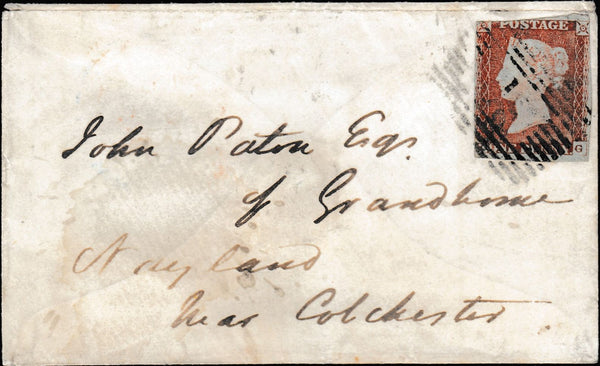 POSTAGE
G
John Paton Esqr.
of Grandhome
Nayland
Near Colchester